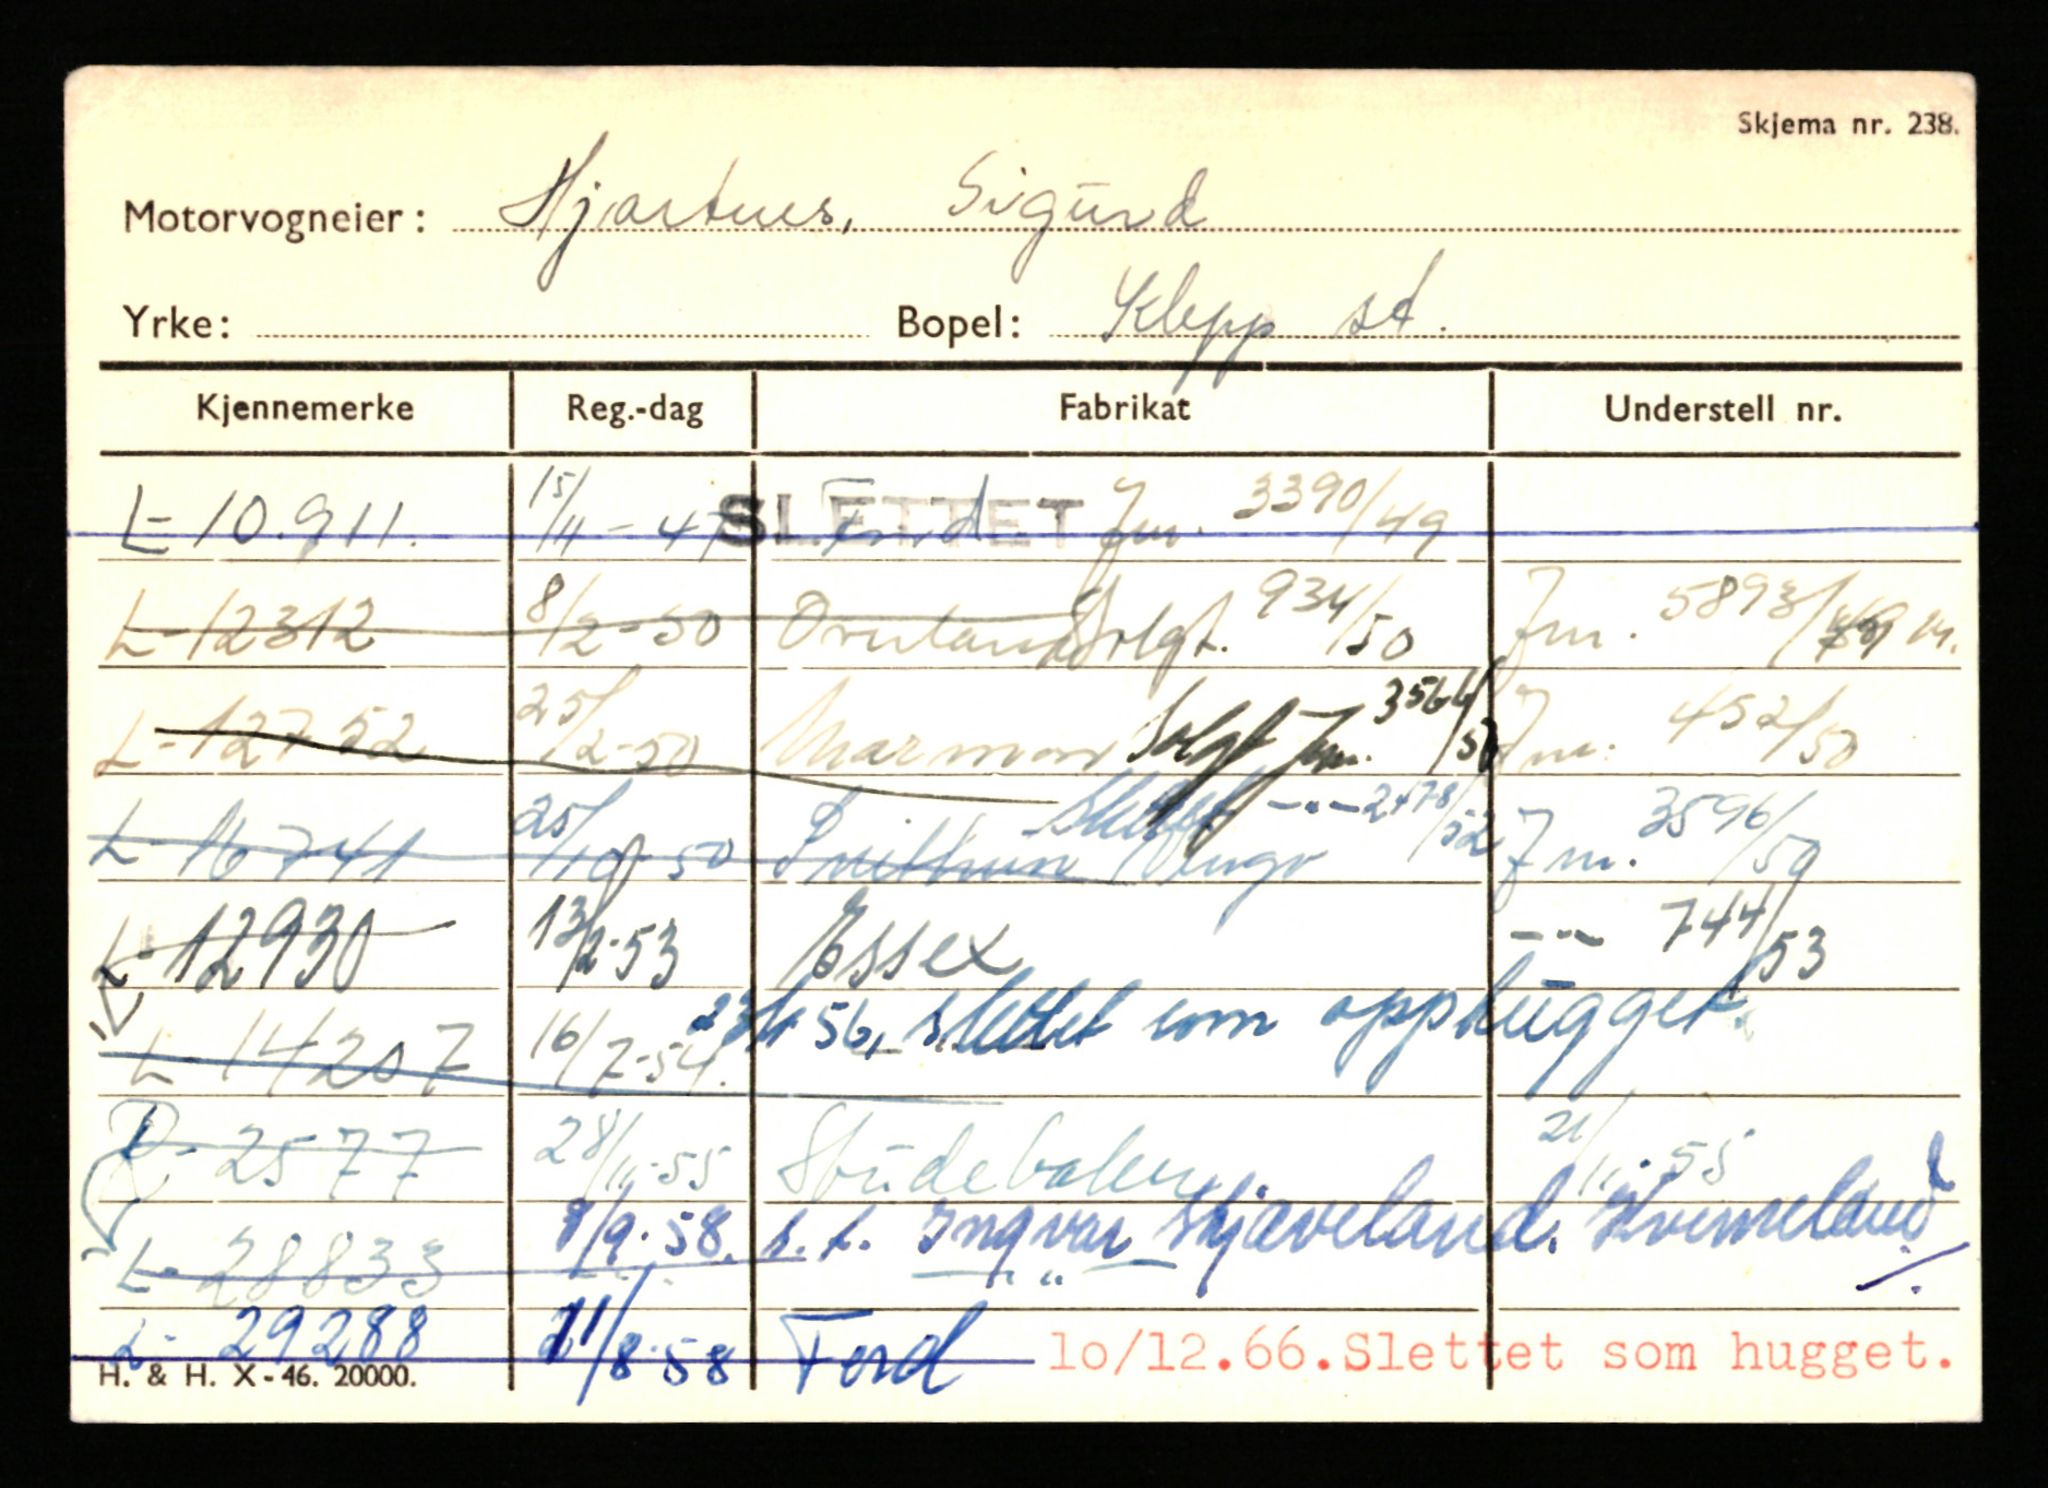 Skjema nr. 238.
Motorvogneier: Hjartnes, Sigurd
Yrke: Bopel: Klepp st.
Kjennemerke Reg.-dag Fabrikat Understell nr.
L-10.911. 15/11-47 SLETTET Ford Jm. 3390/49
L-12312 8/2-50 Overland Solgt. 934/50 Jm. 5893/49 M.
L-12752 25/2-50 Marmon Solgt Jm. 3566/50 Jm. 452/50
Slettet -"- 2478/52
L-16741 25/10-50 Jm. 3596/50
L-12930 13/2-53 Essex -"- 744/53
L-14207 16/7-54. 56, slettet som opphugget.
2577 28/11-55 Studebaker 21/11-55
L-28833 8/9-58. s.t. Ingvar Skjæveland. Kverneland
L-29288 /8-58 Ford 10/12.66.Slettet som hugget.
H. & H. X-46. 20000.